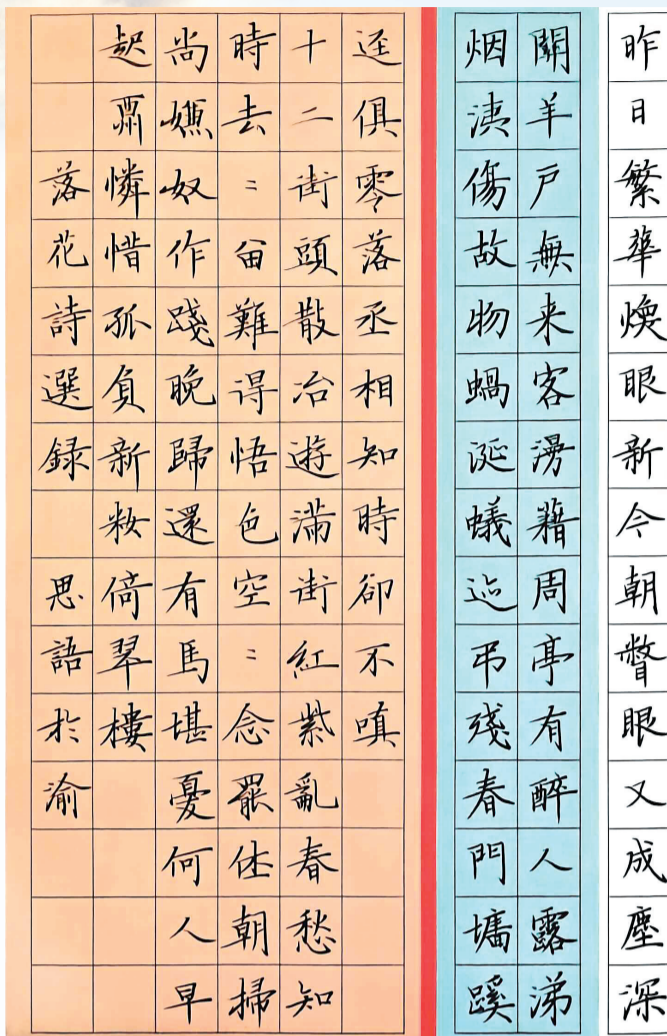 昨日繁華煥眼新今朝瞥眼又成塵深
關羊戶無来客漫藉周亭有醉人露涕
烟洟傷故物蝸涎蟻迹弔殘春門墻蹊
逕俱零落丞相知時卻不嗔
十二街頭散冶遊滿街紅紫亂春愁知
時去〻留難得悟色空〻念罷休朝掃
尚嫌奴作踐晚歸還有馬堪憂何人早
起憐惜孤負新籹倚翠樓
落花詩選録 思語於渝